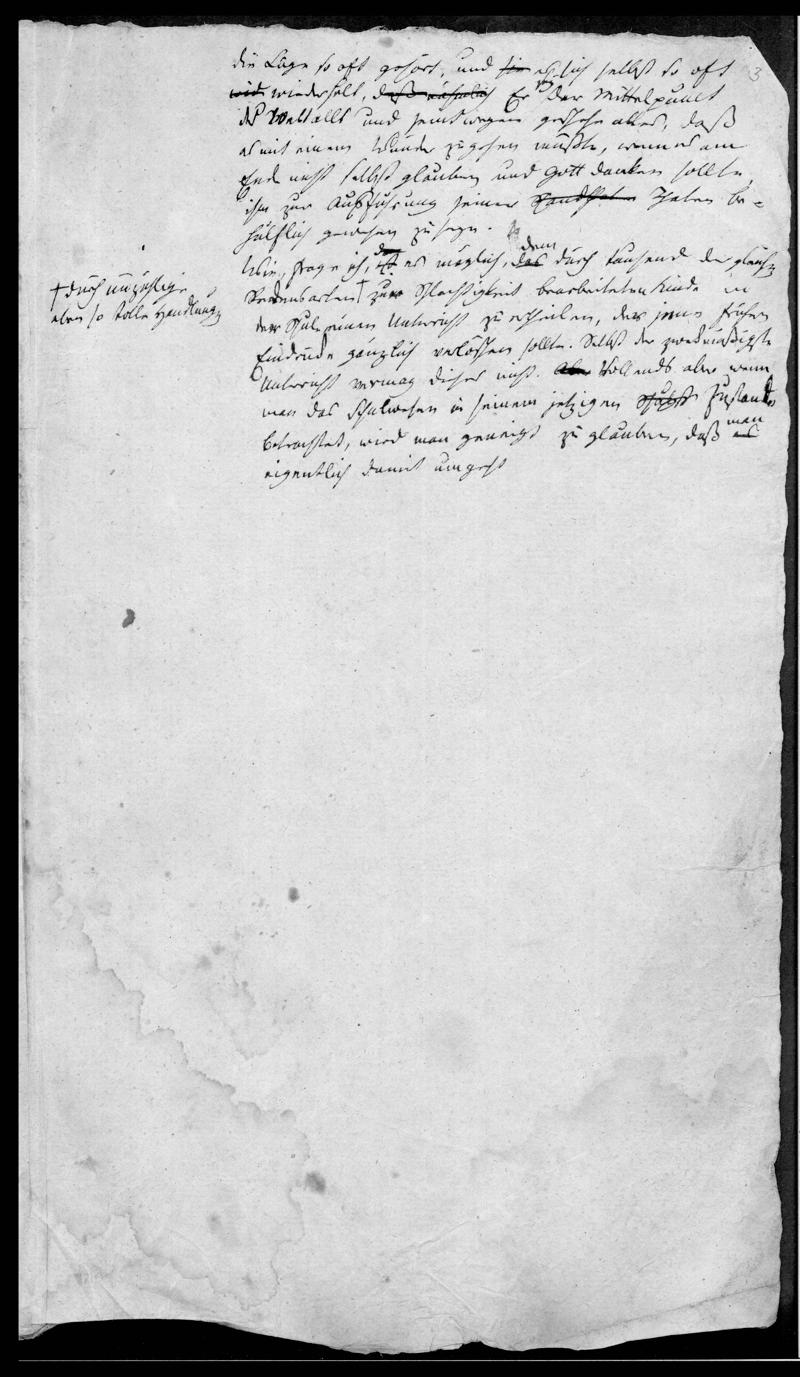 3
die Lüge so oft gehört, und sie er sich selbst so oft
wied wiederholt, daß nähmlich Er sey der Mittelpunct
des Weltalls und seinetwegen geschehe alles, daß
es mit einem Wunder zugehen müßte, wenn er am
Ende nicht selbst glauben und Gott danken sollte,
ihm zur Ausführung seiner Thaten be-
hülflich gewesen zu seyn.
Wie, frage ich, ist es möglich, das dem durch tausend der gleichen
Redensarten † zur Schlechtigkeit bearbeiteten Kinde in
der Schule einen Unterricht zu ertheilen, der jene frühen
Eindrücke gänzlich verlöschen sollte. Selbst der zweckmäßigste
Unterricht vermag dieses nicht. Aber Vollends aber wenn
man das Schulwesen in seinem jetzigen Zustande
betrachtet, wird man geneigt zu glauben, daß es man
eigentlich damit umgeht
† durch unzählige
eben so tolle Handlungen